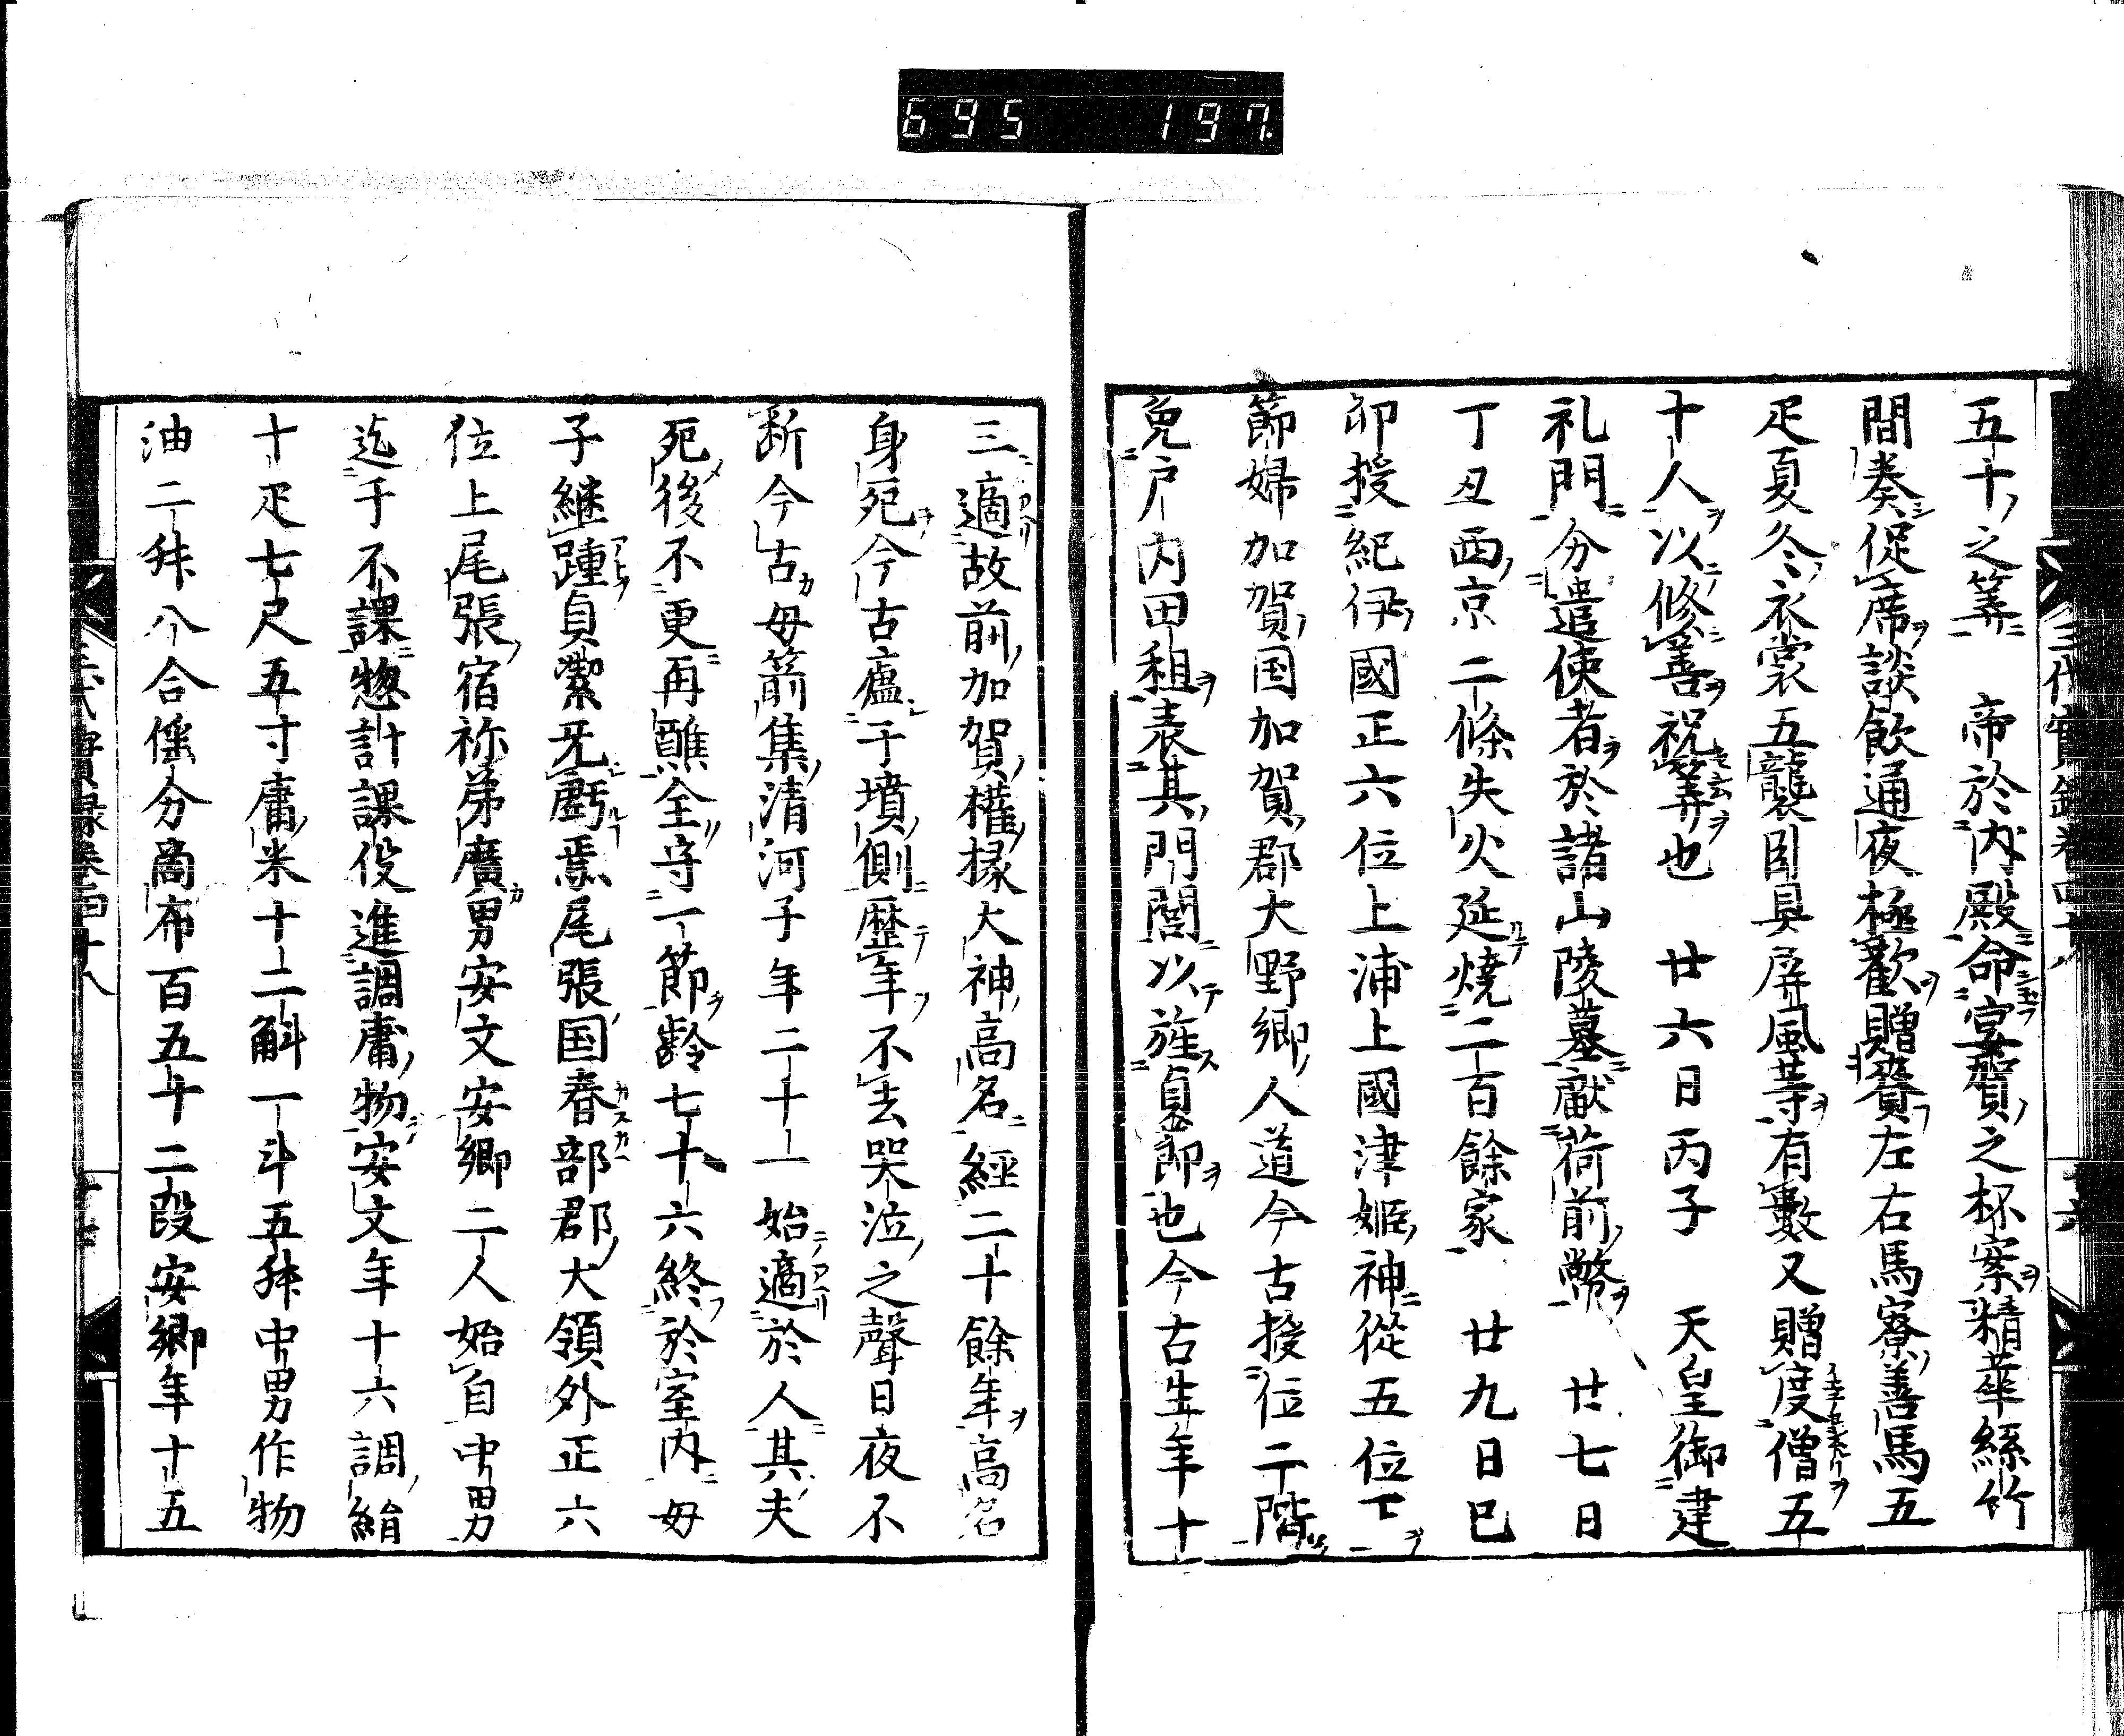 695 197
五十之筭　帝於内殿命宴賀之杯案精華絲竹
間奏促席談飲通夜極歡贈賚左右馬寮善馬五
疋夏冬衣裳五襲卧具屏風等有數又贈度僧五
十人以修善祝筭也　廿六日丙子　天皇御建
礼門分遣使者於諸山陵墓獻荷前幣　廿七日
丁丑西京二條失火延燒二百餘家　廿九日巳
卯授紀伊國正六位上浦上國津姫神從五位下
節婦加賀国加賀郡大野郷人道今古授位二階
免戸内田租表其門閭以旌貞節也今古生年十
三適故前加賀權掾大神高名經二十餘年高名
身死今古廬于墳側歷年不去哭泣之聲日夜不
断今古毋箭集清河子年二十一始適於人其夫
死後不更再醮全守一節齡七十六終於室内毋
子継踵貞潔无虧焉尾張国春部郡大領外正六
位上尾張宿祢弟廣男安文安郷二人始自中男
迄于不課惣計課役進調庸物安文年十六調絹
十疋七尺五寸庸米十二斛一斗五升中男作物
油二升八合徭分商布百五十二段安郷年十五
三代實録卷四十八